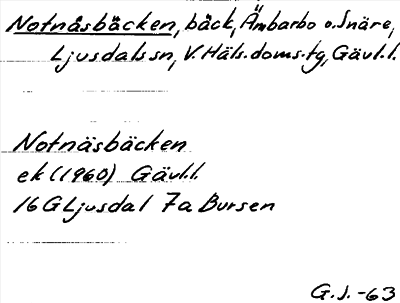 Notnäsbäcken, bäck, Ämbarbo o. Snäre,
Ljusdals sn, V. Häls. doms.-tg, Gävl. l.
Notnäsbäcken
ek (1960) Gävl.l.
16G Ljusdal 7a Bursen
G.J. -63